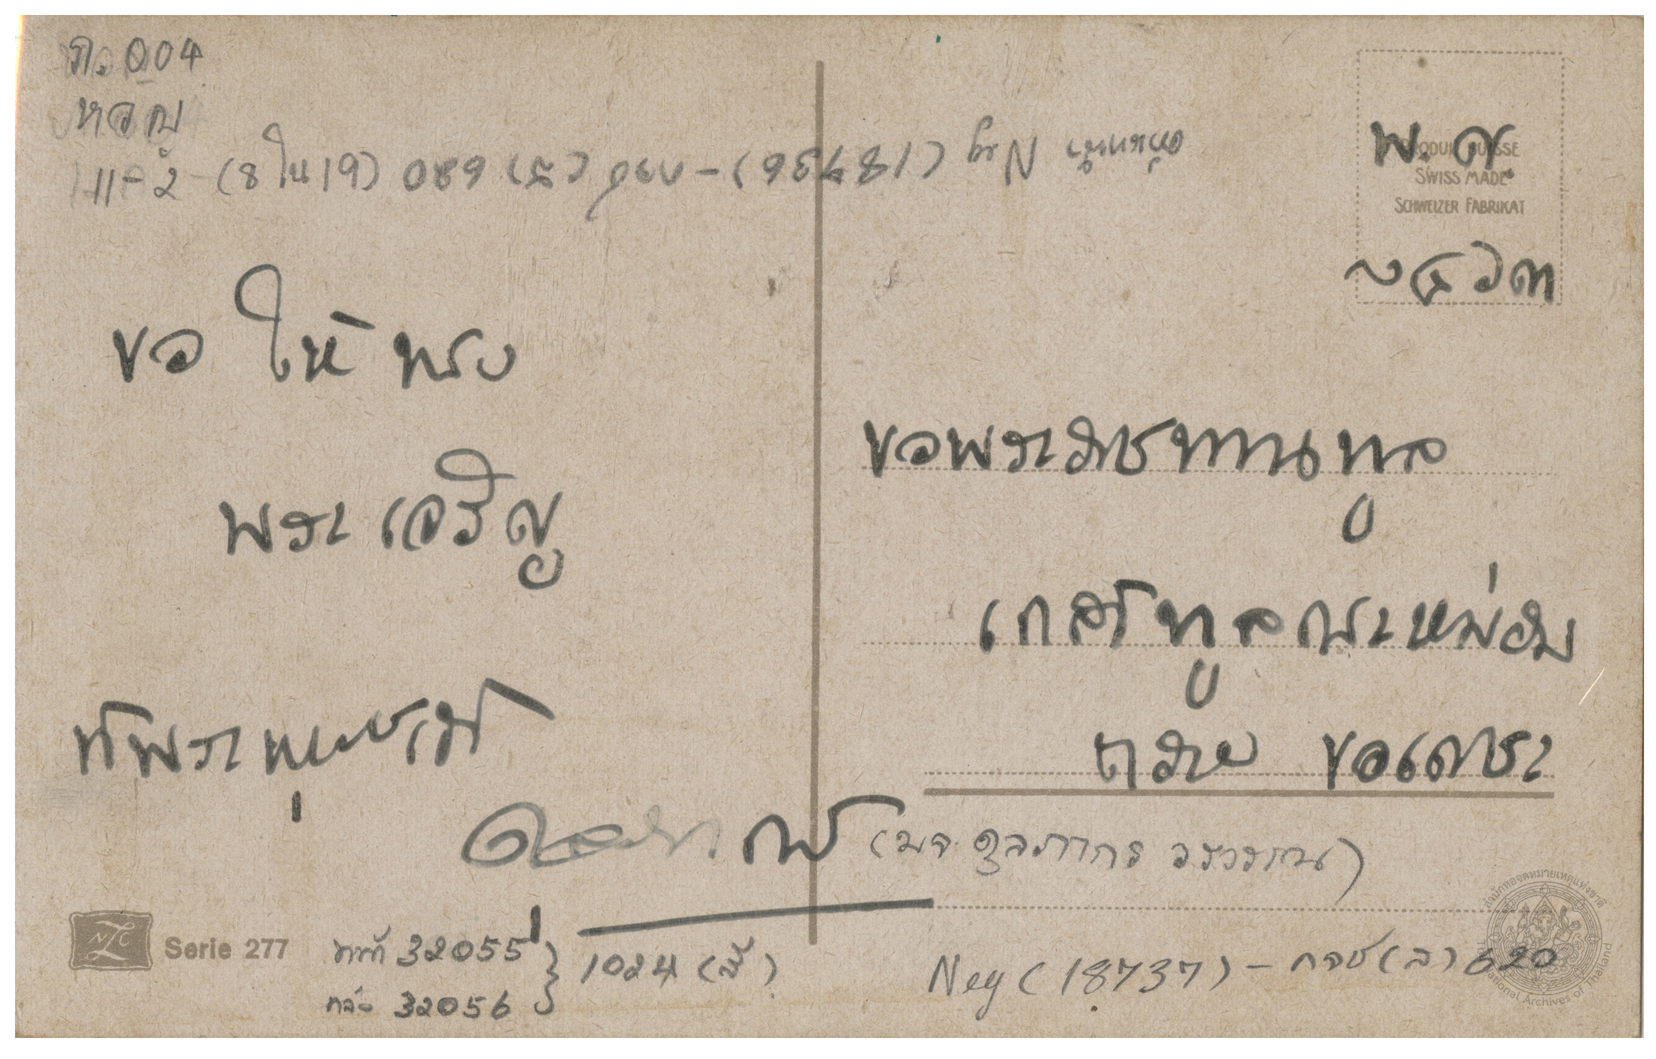 ภ.004
หวญ
11-2 (8 ใน 19)
Neg (18736) - กจช (ล) 680
พ.ศ.
PRODUIT SUISSE
SWISS MADE
SCHWEIZER FABRIKAT
๒๔๖๓
ขอ ให้ ทรง
พระ เจริญ
ขอพระราชทานทูล
เกล้าทูลกระหม่อม
ถวาย ขอเดชะ
(มจ. ดุลภากร วรวรรณ)
NZC
Serie 277
หน้า 32055
หลัง 32056
1024 (สี)
Neg (18737) - กจช (ล) 620
สำนักหอจดหมายเหตุแห่งชาติ
National Archives of Thailand